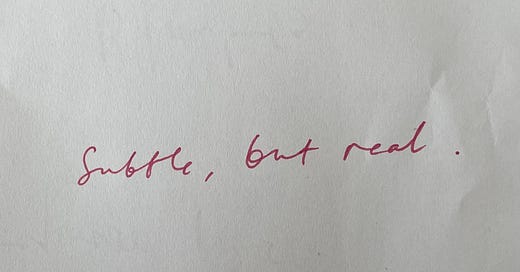 Subtle, but real.